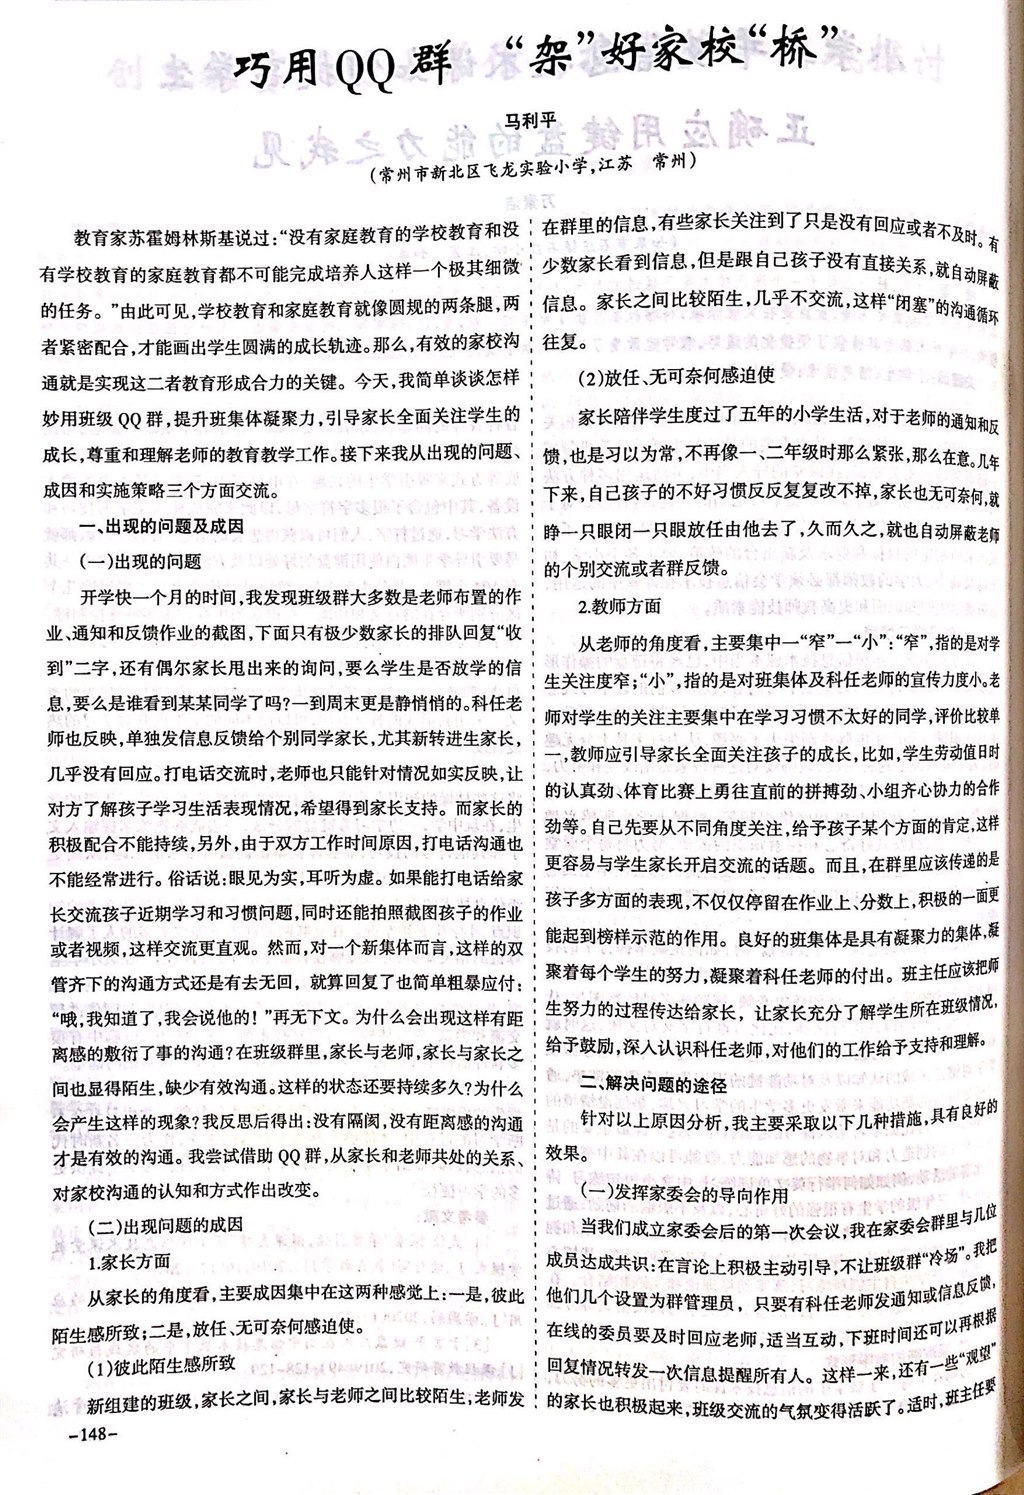 巧用QQ群 “架”好家校“桥”
马利平
(常州市新北区飞龙实验小学,江苏 常州)
教育家苏霍姆林斯基说过:“没有家庭教育的学校教育和没
有学校教育的家庭教育都不可能完成培养人这样一个极其细微
的任务。”由此可见,学校教育和家庭教育就像圆规的两条腿,两
者紧密配合,才能画出学生圆满的成长轨迹。那么,有效的家校沟
通就是实现这二者教育形成合力的关键。今天,我简单谈谈怎样
妙用班级QQ群,提升班集体凝聚力,引导家长全面关注学生的
成长,尊重和理解老师的教育教学工作。接下来我从出现的问题、
成因和实施策略三个方面交流。
一、出现的问题及成因
(一)出现的问题
开学快一个月的时间,我发现班级群大多数是老师布置的作
业、通知和反馈作业的截图,下面只有极少数家长的排队回复“收
到”二字,还有偶尔家长甩出来的询问,要么学生是否放学的信
息,要么是谁看到某某同学了吗?一到周末更是静悄悄的。科任老
师也反映,单独发信息反馈给个别同学家长,尤其新转进生家长,
几乎没有回应。打电话交流时,老师也只能针对情况如实反映,让
对方了解孩子学习生活表现情况,希望得到家长支持。而家长的
积极配合不能持续,另外,由于双方工作时间原因,打电话沟通也
不能经常进行。俗话说:眼见为实,耳听为虚。如果能打电话给家
长交流孩子近期学习和习惯问题,同时还能拍照截图孩子的作业
或者视频,这样交流更直观。然而,对一个新集体而言,这样的双
管齐下的沟通方式还是有去无回,就算回复了也简单粗暴应付:
“哦,我知道了,我会说他的!”再无下文。为什么会出现这样有距
离感的敷衍了事的沟通?在班级群里,家长与老师,家长与家长之
间也显得陌生,缺少有效沟通。这样的状态还要持续多久?为什么
会产生这样的现象?我反思后得出:没有隔阂,没有距离感的沟通
才是有效的沟通。我尝试借助QQ群,从家长和老师共处的关系、
对家校沟通的认知和方式作出改变。
(二)出现问题的成因
1.家长方面
从家长的角度看,主要成因集中在这两种感觉上:一是,彼此
陌生感所致;二是,放任、无可奈何感迫使。
(1)彼此陌生感所致
新组建的班级,家长之间,家长与老师之间比较陌生,老师发
-148-
在群里的信息,有些家长关注到了只是没有回应或者不及时。有
少数家长看到信息,但是跟自己孩子没有直接关系,就自动屏蔽
信息。家长之间比较陌生,几乎不交流,这样“闭塞”的沟通循环
往复。
(2)放任、无可奈何感迫使
家长陪伴学生度过了五年的小学生活,对于老师的通知和反
馈,也是习以为常,不再像一、二年级时那么紧张,那么在意。几年
下来,自己孩子的不好习惯反反复复改不掉,家长也无可奈何,就
睁一只眼闭一只眼放任由他去了,久而久之,就也自动屏蔽老师
的个别交流或者群反馈。
2.教师方面
从老师的角度看,主要集中一“窄”一“小”:“窄”,指的是对学
生关注度窄;“小”,指的是对班集体及科任老师的宣传力度小。老
师对学生的关注主要集中在学习习惯不太好的同学,评价比较单
一,教师应引导家长全面关注孩子的成长,比如,学生劳动值日时
的认真劲、体育比赛上勇往直前的拼搏劲、小组齐心协力的合作
劲等。自己先要从不同角度关注,给予孩子某个方面的肯定,这样
更容易与学生家长开启交流的话题。而且,在群里应该传递的是
孩子多方面的表现,不仅仅停留在作业上、分数上,积极的一面更
能起到榜样示范的作用。良好的班集体是具有凝聚力的集体,凝
聚着每个学生的努力,凝聚着科任老师的付出。班主任应该把师
生努力的过程传达给家长,让家长充分了解学生所在班级情况,
给予鼓励,深入认识科任老师,对他们的工作给予支持和理解。
二、解决问题的途径
针对以上原因分析,我主要采取以下几种措施,具有良好的
效果。
(一)发挥家委会的导向作用
当我们成立家委会后的第一次会议,我在家委会群里与几位
成员达成共识:在言论上积极主动引导,不让班级群“冷场”。我把
他们几个设置为群管理员,只要有科任老师发通知或信息反馈,
在线的委员要及时回应老师,适当互动,下班时间还可以再根据
回复情况转发一次信息提醒所有人。这样一来,还有一些“观望”
的家长也积极起来,班级交流的气氛变得活跃了。适时,班主任要